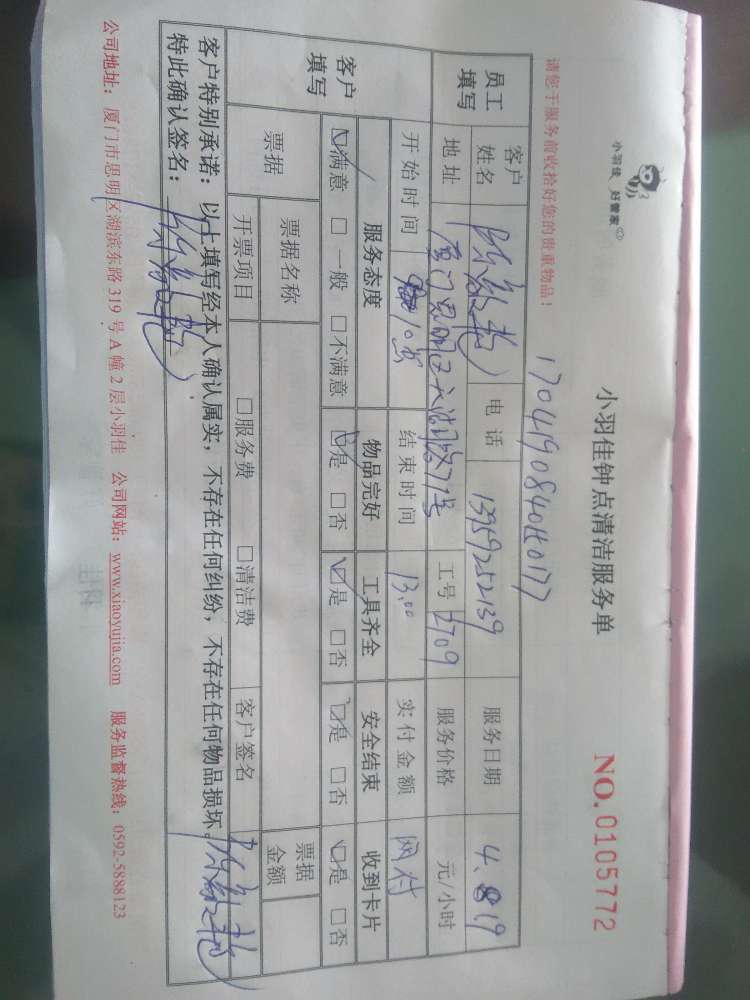 小羽佳 好管家
小羽佳钟点清洁服务单
NO.0105772
请您于服务前收拾好您的贵重物品！
员工填写
客户姓名
电话 13959252139
服务日期 4.19
地址
工号 2709
服务价格 元/小时
客户填写
开始时间 10点
结束时间 13.00
实付金额 网付
服务态度 物品完好 工具齐全 安全结束 收到卡片
☑满意 □一般 □不满意 ☑是 □否 ☑是 □否 ☑是 □否 ☑是 □否
票据
票据名称
票据金额
开票项目 □服务费 □清洁费 客户签名
客户特别承诺：以上填写经本人确认属实，不存在任何纠纷，不存在任何物品损坏。
特此确认签名：
公司地址：厦门市思明区湖滨东路 319 号 A 幢 2 层小羽佳 公司网站：www.xiaoyujia.com 服务监督热线：0592-5888123